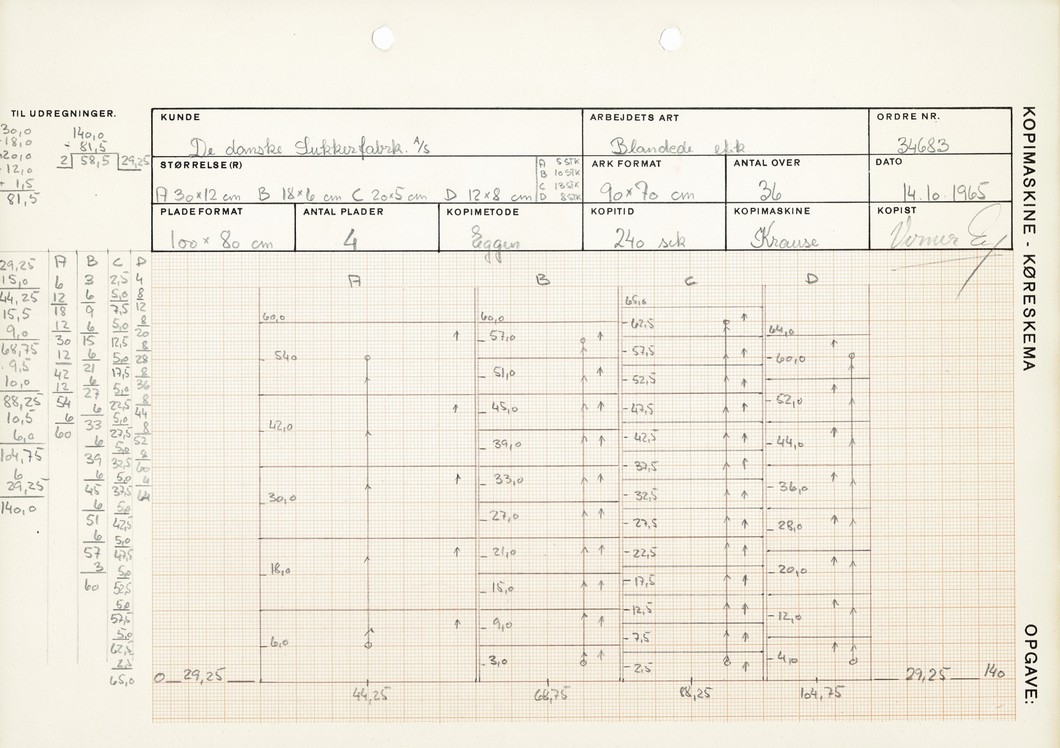 TIL UDREGNINGER.
30,0
18,0
20,0
12,0
+ 1,5
81,5
140,0
- 81,5
2 58,5 29,25
KUNDE
De danske Sukkerfabrk. A/S
ARBEJDETS ART
Blandede etk
ORDRE NR.
34683
STØRRELSE(R)
A 30×12 cm B 18×6 cm C 20×5 cm D 12×8 cm
A 5 STK
B 10 STK
C 13 STK
D 8 STK
ARK FORMAT
90×70 cm
ANTAL OVER
36
DATO
14.10.1965
PLADE FORMAT
100×80 cm
ANTAL PLADER
4
KOPIMETODE
Eggen
KOPITID
240 sek
KOPIMASKINE
Krause
KOPIST
KOPIMASKINE - KØRESKEMA
OPGAVE:
29,25
15,0
44,25
15,5
9,0
68,75
9,5
10,0
88,25
10,5
6,0
104,75
6
29,25
140,0
A
6
12
18
12
30
12
42
12
54
6
60
B
3
6
9
6
15
6
21
6
27
6
33
6
39
6
45
6
51
6
57
3
60
C
2,5
5,0
7,5
5,0
12,5
5,0
17,5
5,0
22,5
5,0
27,5
5,0
32,5
5,0
37,5
5,0
42,5
5,0
47,5
5,0
52,5
5,0
57,5
5,0
62,5
2,5
65,0
D
4
8
12
8
20
8
28
8
36
8
44
8
52
8
60
4
64
A
60,0
54,0
42,0
30,0
18,0
6,0
B
60,0
57,0
51,0
45,0
39,0
33,0
27,0
21,0
15,0
9,0
3,0
C
65,0
62,5
57,5
52,5
47,5
42,5
37,5
32,5
27,5
22,5
17,5
12,5
7,5
2,5
D
64,0
60,0
52,0
44,0
36,0
28,0
20,0
12,0
4,0
0 29,25
29,25 140
44,25 68,75 88,25 104,75